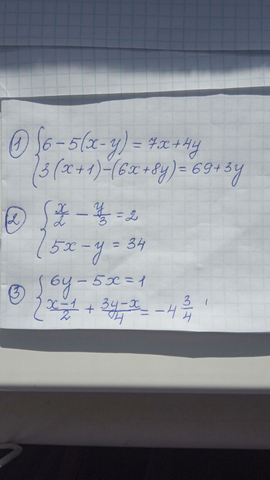 1) { 6 - 5(x - y) = 7x + 4y
3(x + 1) - (6x + 8y) = 69 + 3y
2) { x/2 - y/3 = 2
5x - y = 34
3) { 6y - 5x = 1
(x - 1)/2 + (3y - x)/4 = -4 3/4